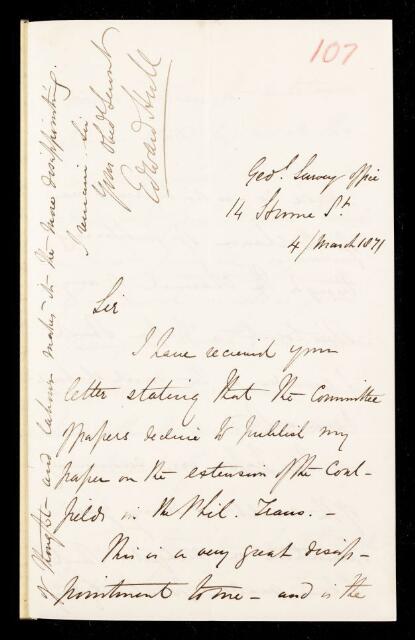 107
Geol. Survey Office
14 Hume St.
4/March 1871
Sir
I have received your
letter stating that the Committee
of papers decline to publish my
paper on the extension of the Coal-
fields in the Phil. Trans. -
This is a very great disap-
pointment to me - and is the
of thought - and labour makes it the more disappointing.
I remain Sir
Your Obedt Servant
Edward Hull